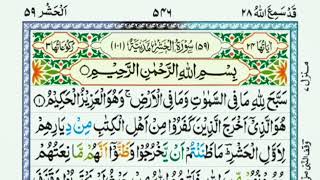 قَدْ سَمِعَ اللّٰهُ ٢٨ ٥٤٦ اَلْحَشْر ٥٩
اٰیَاتُهَا ٢٤ (٥٩) سُوْرَةُ الْحَشْرِ مَدَنِيَّةٌ (١٠١) رُكُوْعَاتُهَا ٣
بِسْمِ اللّٰهِ الرَّحْمٰنِ الرَّحِيْمِ
سَبَّحَ لِلّٰهِ مَا فِي السَّمٰوٰتِ وَمَا فِي الْاَرْضِ ۚ وَهُوَ الْعَزِيْزُ الْحَكِيْمُ ①
هُوَ الَّذِيْٓ اَخْرَجَ الَّذِيْنَ كَفَرُوْا مِنْ اَهْلِ الْكِتٰبِ مِنْ دِيَارِهِمْ
لِاَوَّلِ الْحَشْرِ ؔ مَا ظَنَنْتُمْ اَنْ يَّخْرُجُوْا وَظَنُّوْٓا اَنَّهُمْ مَّا نِعَتُهُمْ